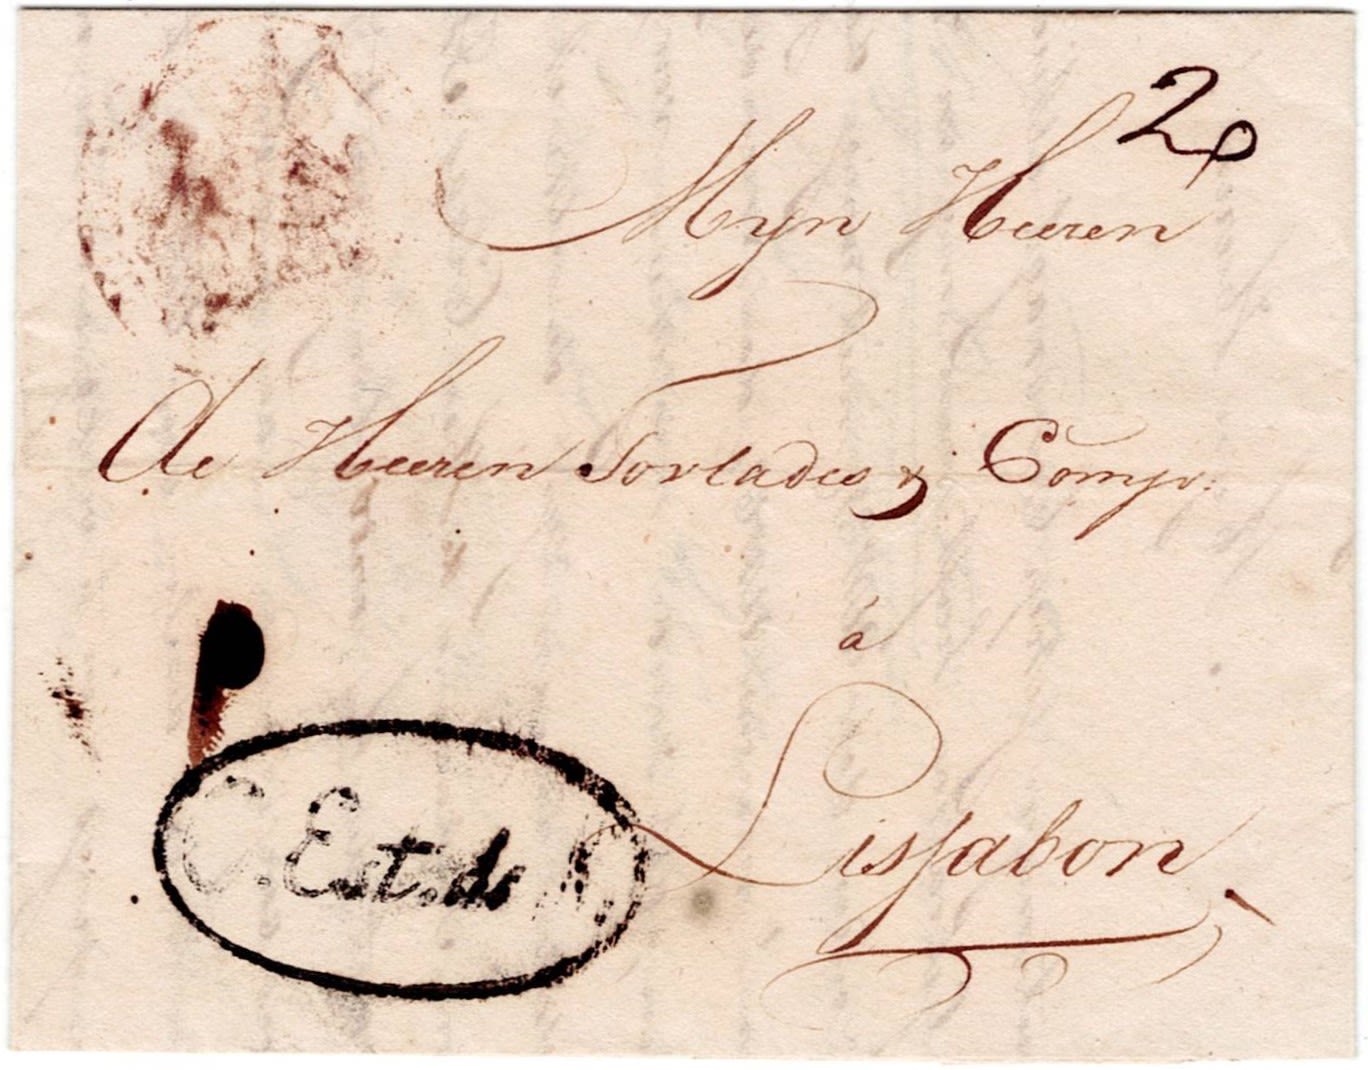 Myn Heeren
De Heeren Torlades & Compe.
á
Lissabon
C. Est. de N.